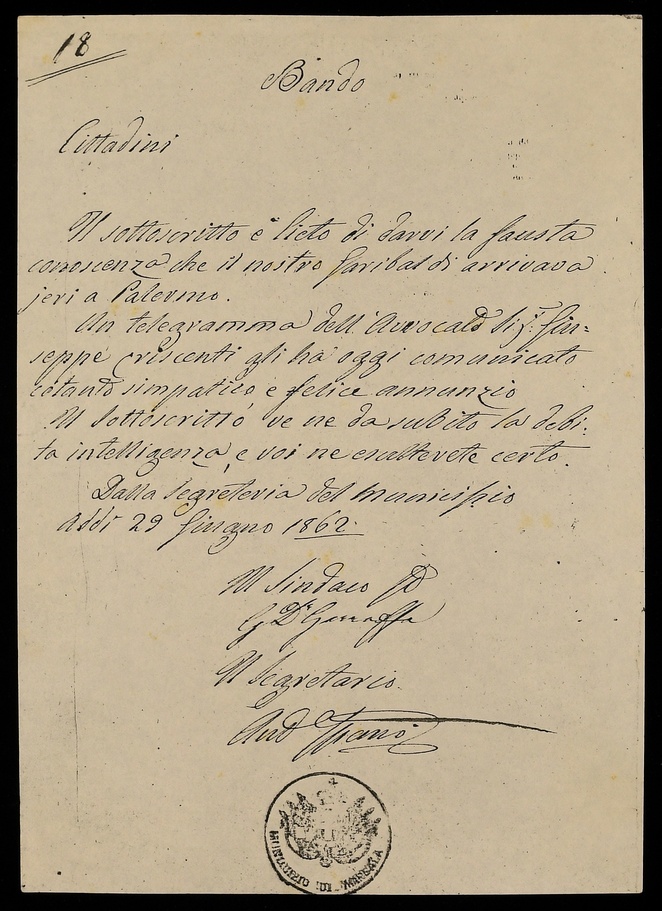 18
Bando
Cittadini
Il sottoscritto è lieto di darvi la fausta
conoscenza che il nostro Garibaldi arrivava
jeri a Palermo.
Un telegramma dell'Avvocato Sig.r Giu=
seppe Criscenti gli ha oggi comunicato
cotanto simpatico e felice annunzio
Il Sottoscritto ve ne da subito la debi=
ta intelligenza, e voi ne esalterete certo.
Dalla Segreteria del Municipio
Addi 29 Giugno 1862.
Il Sindaco
Il Segretario
And
MUNICIPIO DI MARSALA